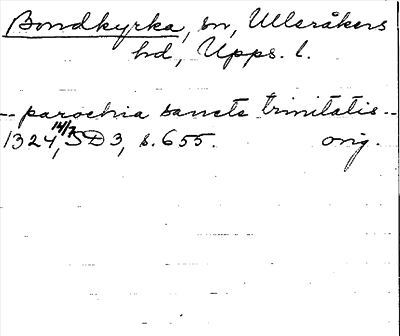 Bondkyrka, sn, Ulleråkers
hd, Upps. l.
-- parochia sancte trinitatis --
1324 14/7, SD 3, s. 655. orig.